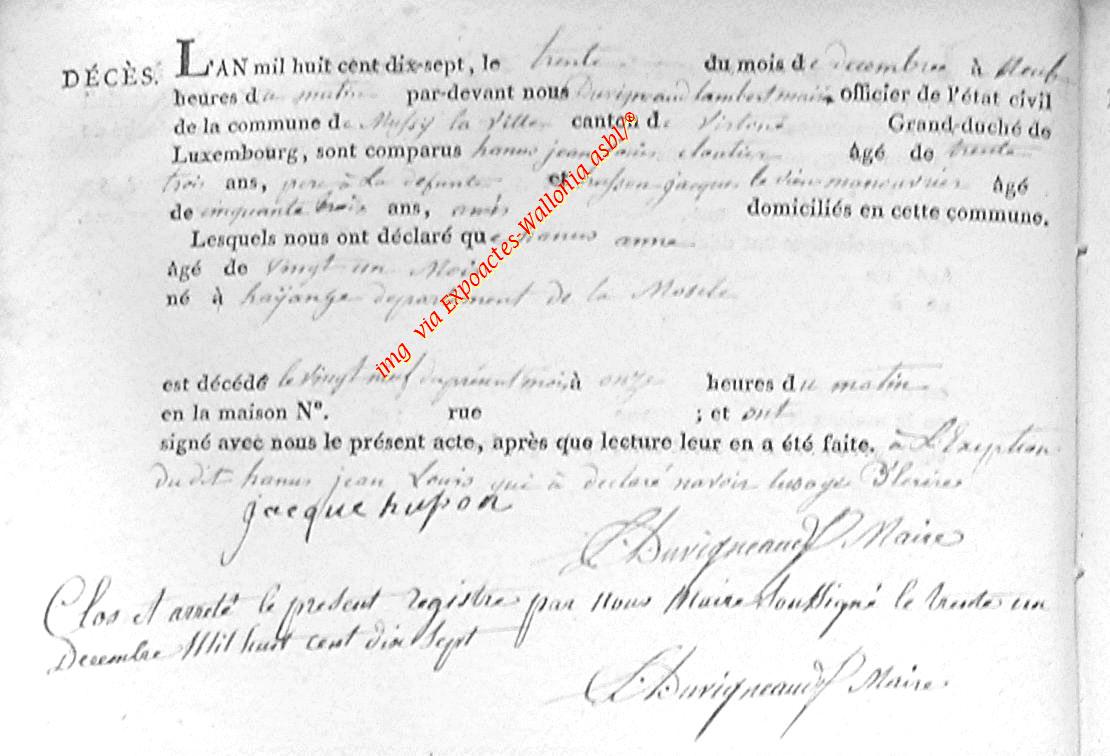 DÉCÈS. L'AN mil huit cent dix-sept, le trente du mois de decembre à Neuf
heures du matin par-devant nous Duvigneaud lambert maire officier de l'état civil
de la commune de Mussy la ville canton de Virton Grand-duché de
Luxembourg, sont comparus hanus jean Louis cloutier âgé de trente
trois ans, pere à La defunte et husson jacques le vieu manouvrier âgé
de cinquante trois ans, amis domiciliés en cette commune.
Lesquels nous ont déclaré que hanus anne
âgé de vingt un Mois
né à haÿange departement de la Mosele
est décédé le vingt neuf du présent mois à onze heures du matin
en la maison N°. rue ; et ont
signé avec nous le présent acte, après que lecture leur en a été faite. à L'Exeption
Du dit hanus jean Louis qui à declaré navoir lusage D'Ecrire
jacque husson
L. Duvigneaud Maire
Clos et arreté le present registre par nous Maire Soussigné le trente un
Decembre Mil huit cent dix Sept
L. Duvigneaud Maire
img via Expoactes-Wallonia asbl/®